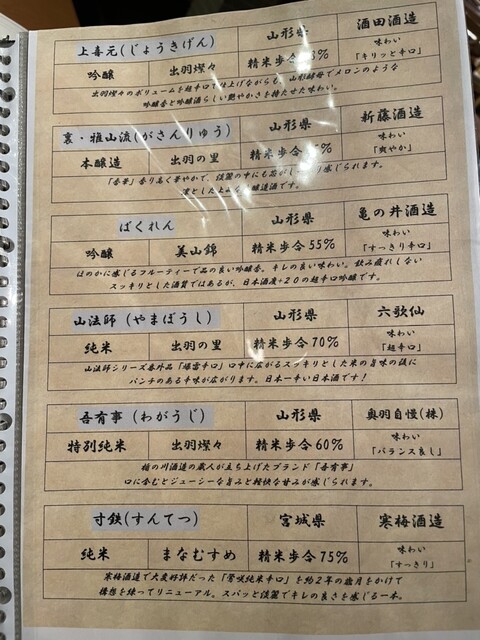 上喜元(じょうきげん) 山形県 酒田酒造
吟醸 出羽燦々 精米歩合 3% 味わい「キリッと辛口」
出羽燦々のボリュームを超辛口で仕上げながらも、山形酵母でメロンのような
吟醸香と吟醸酒らしい艶やかさを持たせた味わい。
裏・雅山流(がさんりゅう) 山形県 新藤酒造
本醸造 出羽の里 精米歩合 5% 味わい「爽やか」
「香華」香り名く華やかで、淡麗の中にも芯がしっかり感じられます。
凛とした 醸造酒です。
ばくれん 山形県 亀の井酒造
吟醸 美山錦 精米歩合55% 味わい「すっきり辛口」
ほのかに感じるフルーティーで品の良い吟醸香。キレの良い味わい。飲み疲れしない
スッキリとした酒質ではあるが、日本酒度+20の超辛口吟醸です。
山法師(やまぼうし) 山形県 六歌仙
純米 出羽の里 精米歩合70% 味わい「超辛口」
山法師シリーズ番外品「爆雷辛口」口中に広がるスッキリとした米の旨味の後に
パンチのある辛味が広がります。日本一辛い日本酒です!
吾有事(わがうじ) 山形県 奥羽自慢(株)
特別純米 出羽燦々 精米歩合60% 味わい「バランス良し」
楯の川酒造の蔵人が立ち上げたブランド「吾有事」
口に含むとジューシーな旨みと軽快な甘みが感じられます。
寸鉄(すんてつ) 宮城県 寒梅酒造
純米 まなむすめ 精米歩合75% 味わい「すっきり」
寒梅酒造で大変好評だった「鶯咲純米辛口」を約2年の歳月をかけて
構想を練ってリニューアル。スパッと淡麗でキレの良さを感じる一本。